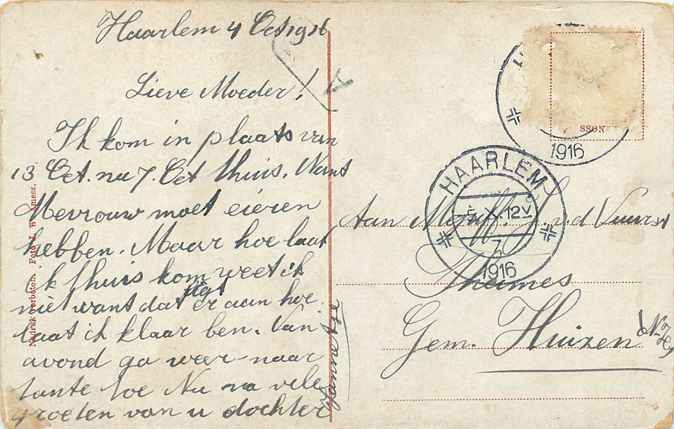 Haarlem 4 Oct 1916
Lieve Moeder!
Ik kom in plaats van
13 Oct. nu 7. Oct thuis. Want
Mevrouw moet eieren
hebben. Maar hoe laat
ik thuis kom weet ik
niet want dat ligt er aan hoe
laat ik klaar ben. Van
avond ga weer naar
tante toe Nu na vele
groeten van u dochter
Aan v.d Vuurst
Gem. Huizen
N.H.
HAARLEM
5.X.12V
1916
1916
SSON
Nadruk verboden. Foto